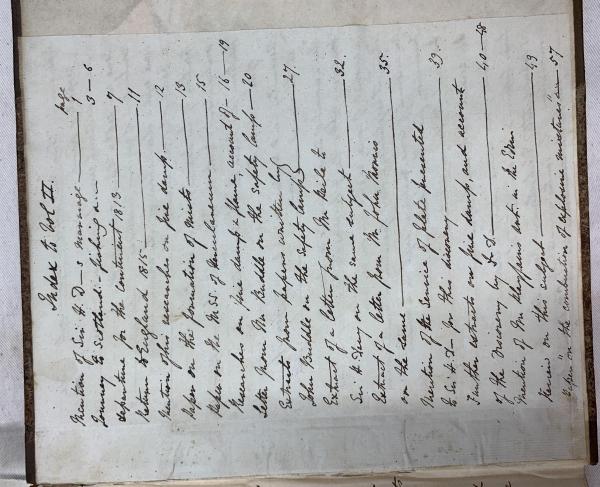 Index to Vol II.
page
Mention of Sir H. D—s marriage — 1
Journey to Scotland - fishing on — 3 – 6
departure for the Continent 1813 — 7
Return to England 1815 — 11
Mention of his researches on fire damp. — 12
Paper on the formation of mists — 13
Paper on the MSS of Herculaneum — 15
Researches on fire damp & flame, account of — 16 – 19
Letter from Mr Buddle on the safety lamp — 20
Extracts from papers written by
John Buddle on the safety lamp — 27.
Extract of a letter from Mr to
Sir H. Davy on the same subject — 32.
Extract of a letter from Mr John
on the same — 35.
Mention of the Service of plate presented
to Sir H. D— for this discovery — 39.
Further extracts on fire damp, and account
of the discovery by Sr. D. — 40 – 48
Mention of Mr not in the
on this subject — 49
Paper on "the combustion of explosive mixtures" — 57